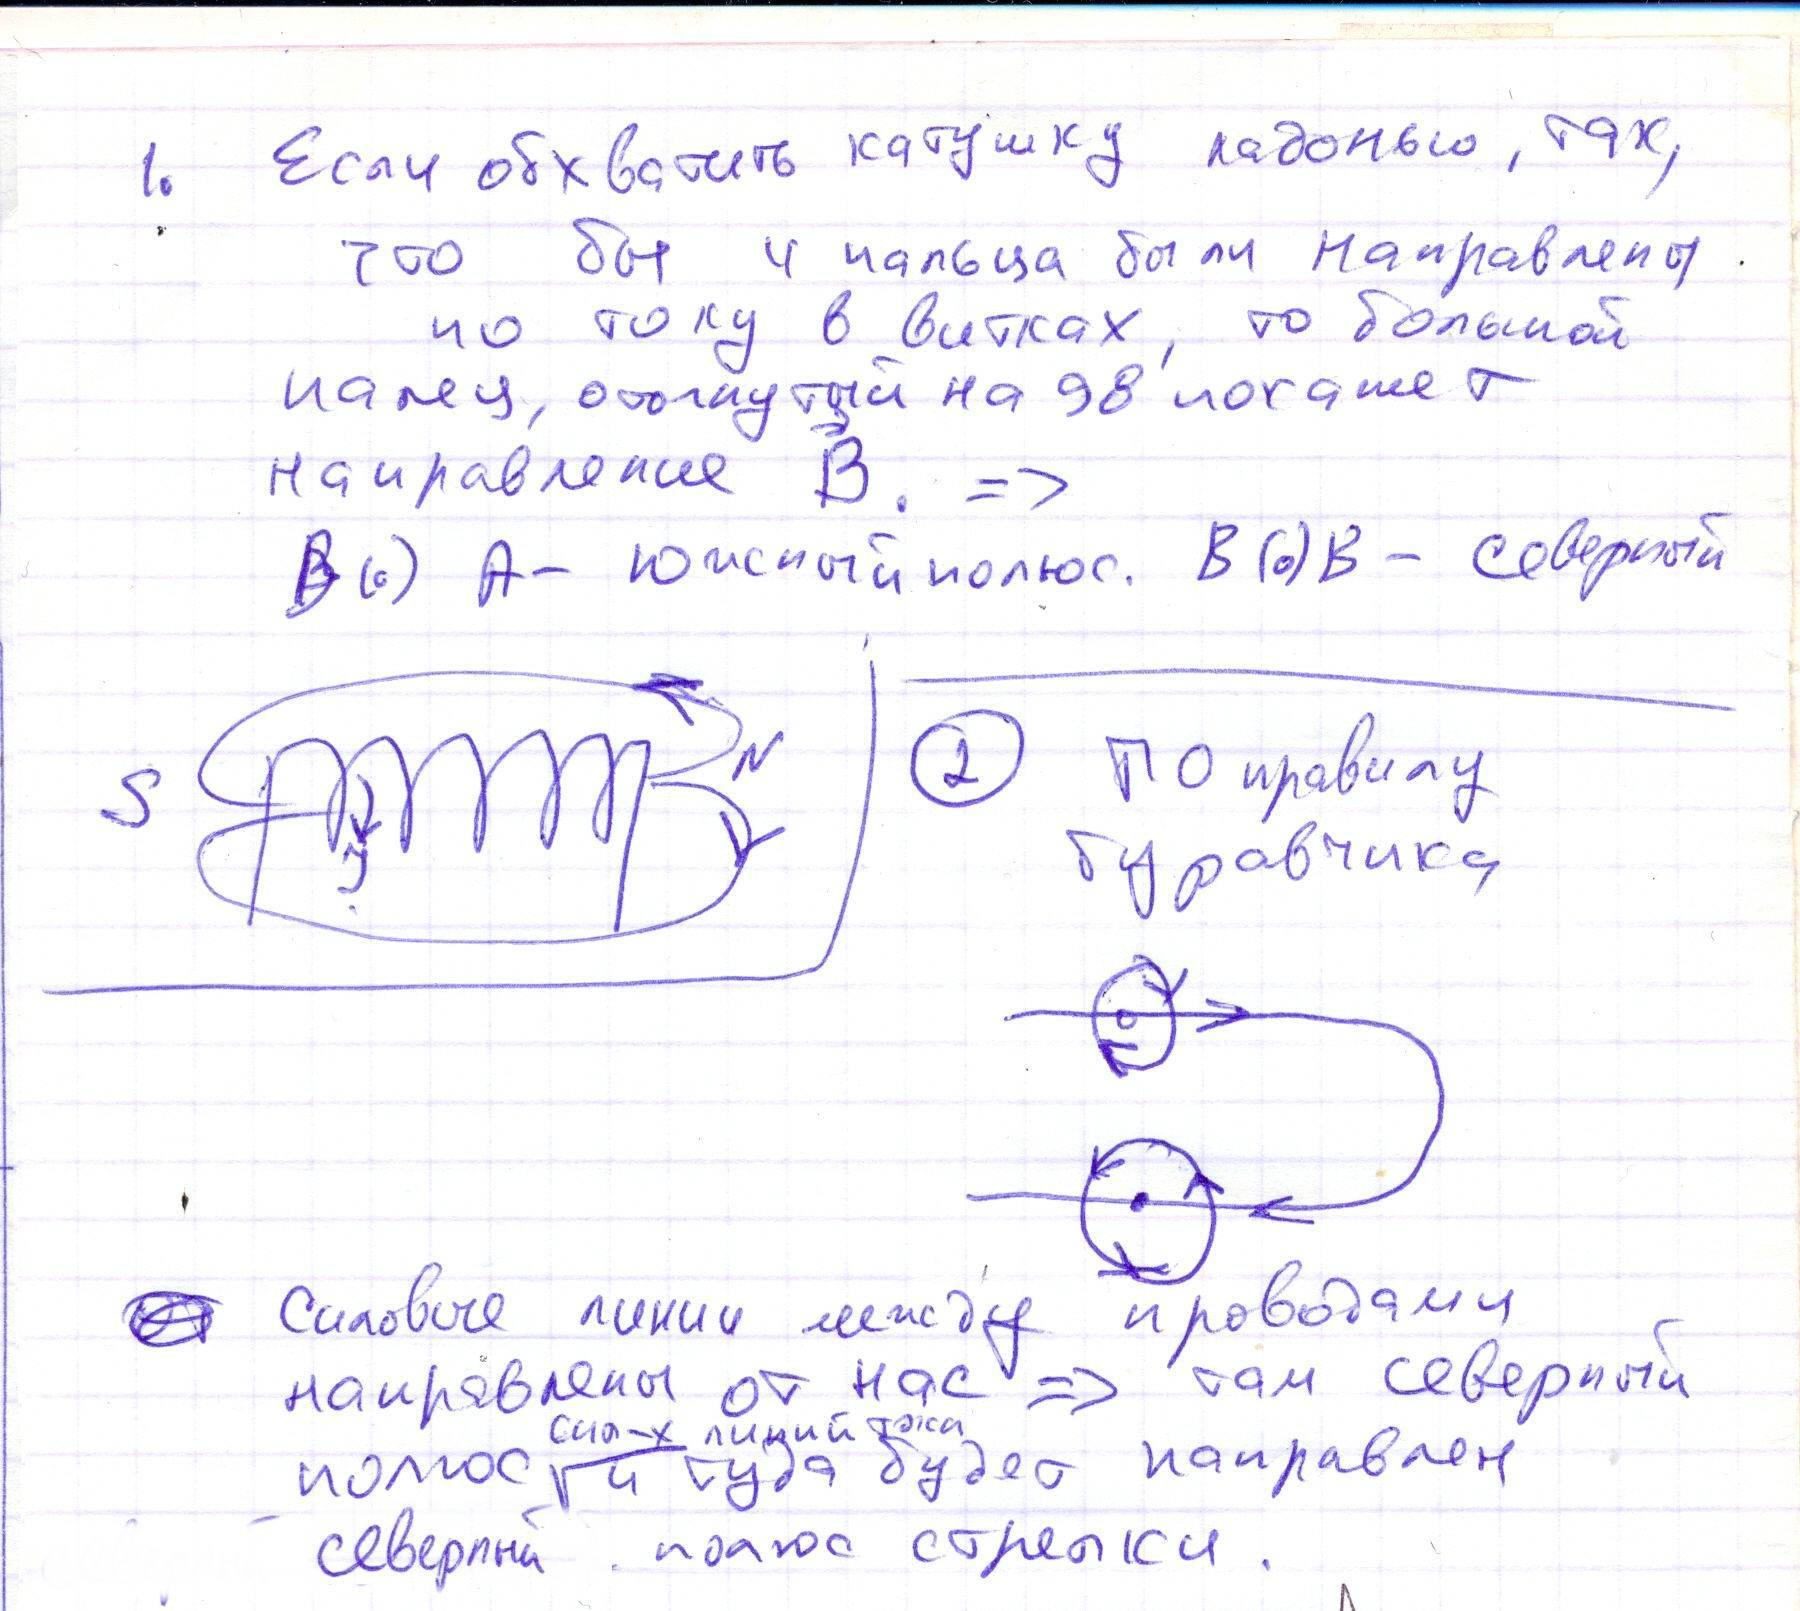 1. Если обхватить катушку ладонью, так,
что бы 4 пальца были направлены
по току в витках, то большой
палец, отогнутый на 90° покажет
направление B⃗. =>
В (·) A - южный полюс. В (·) B - северный
S
N
J
2 По правилу
буравчика
Силовые линии между проводами
направлены от нас => там северный
сил-х линий тока
полюс √ и туда будет направлен
северный полюс стрелки.